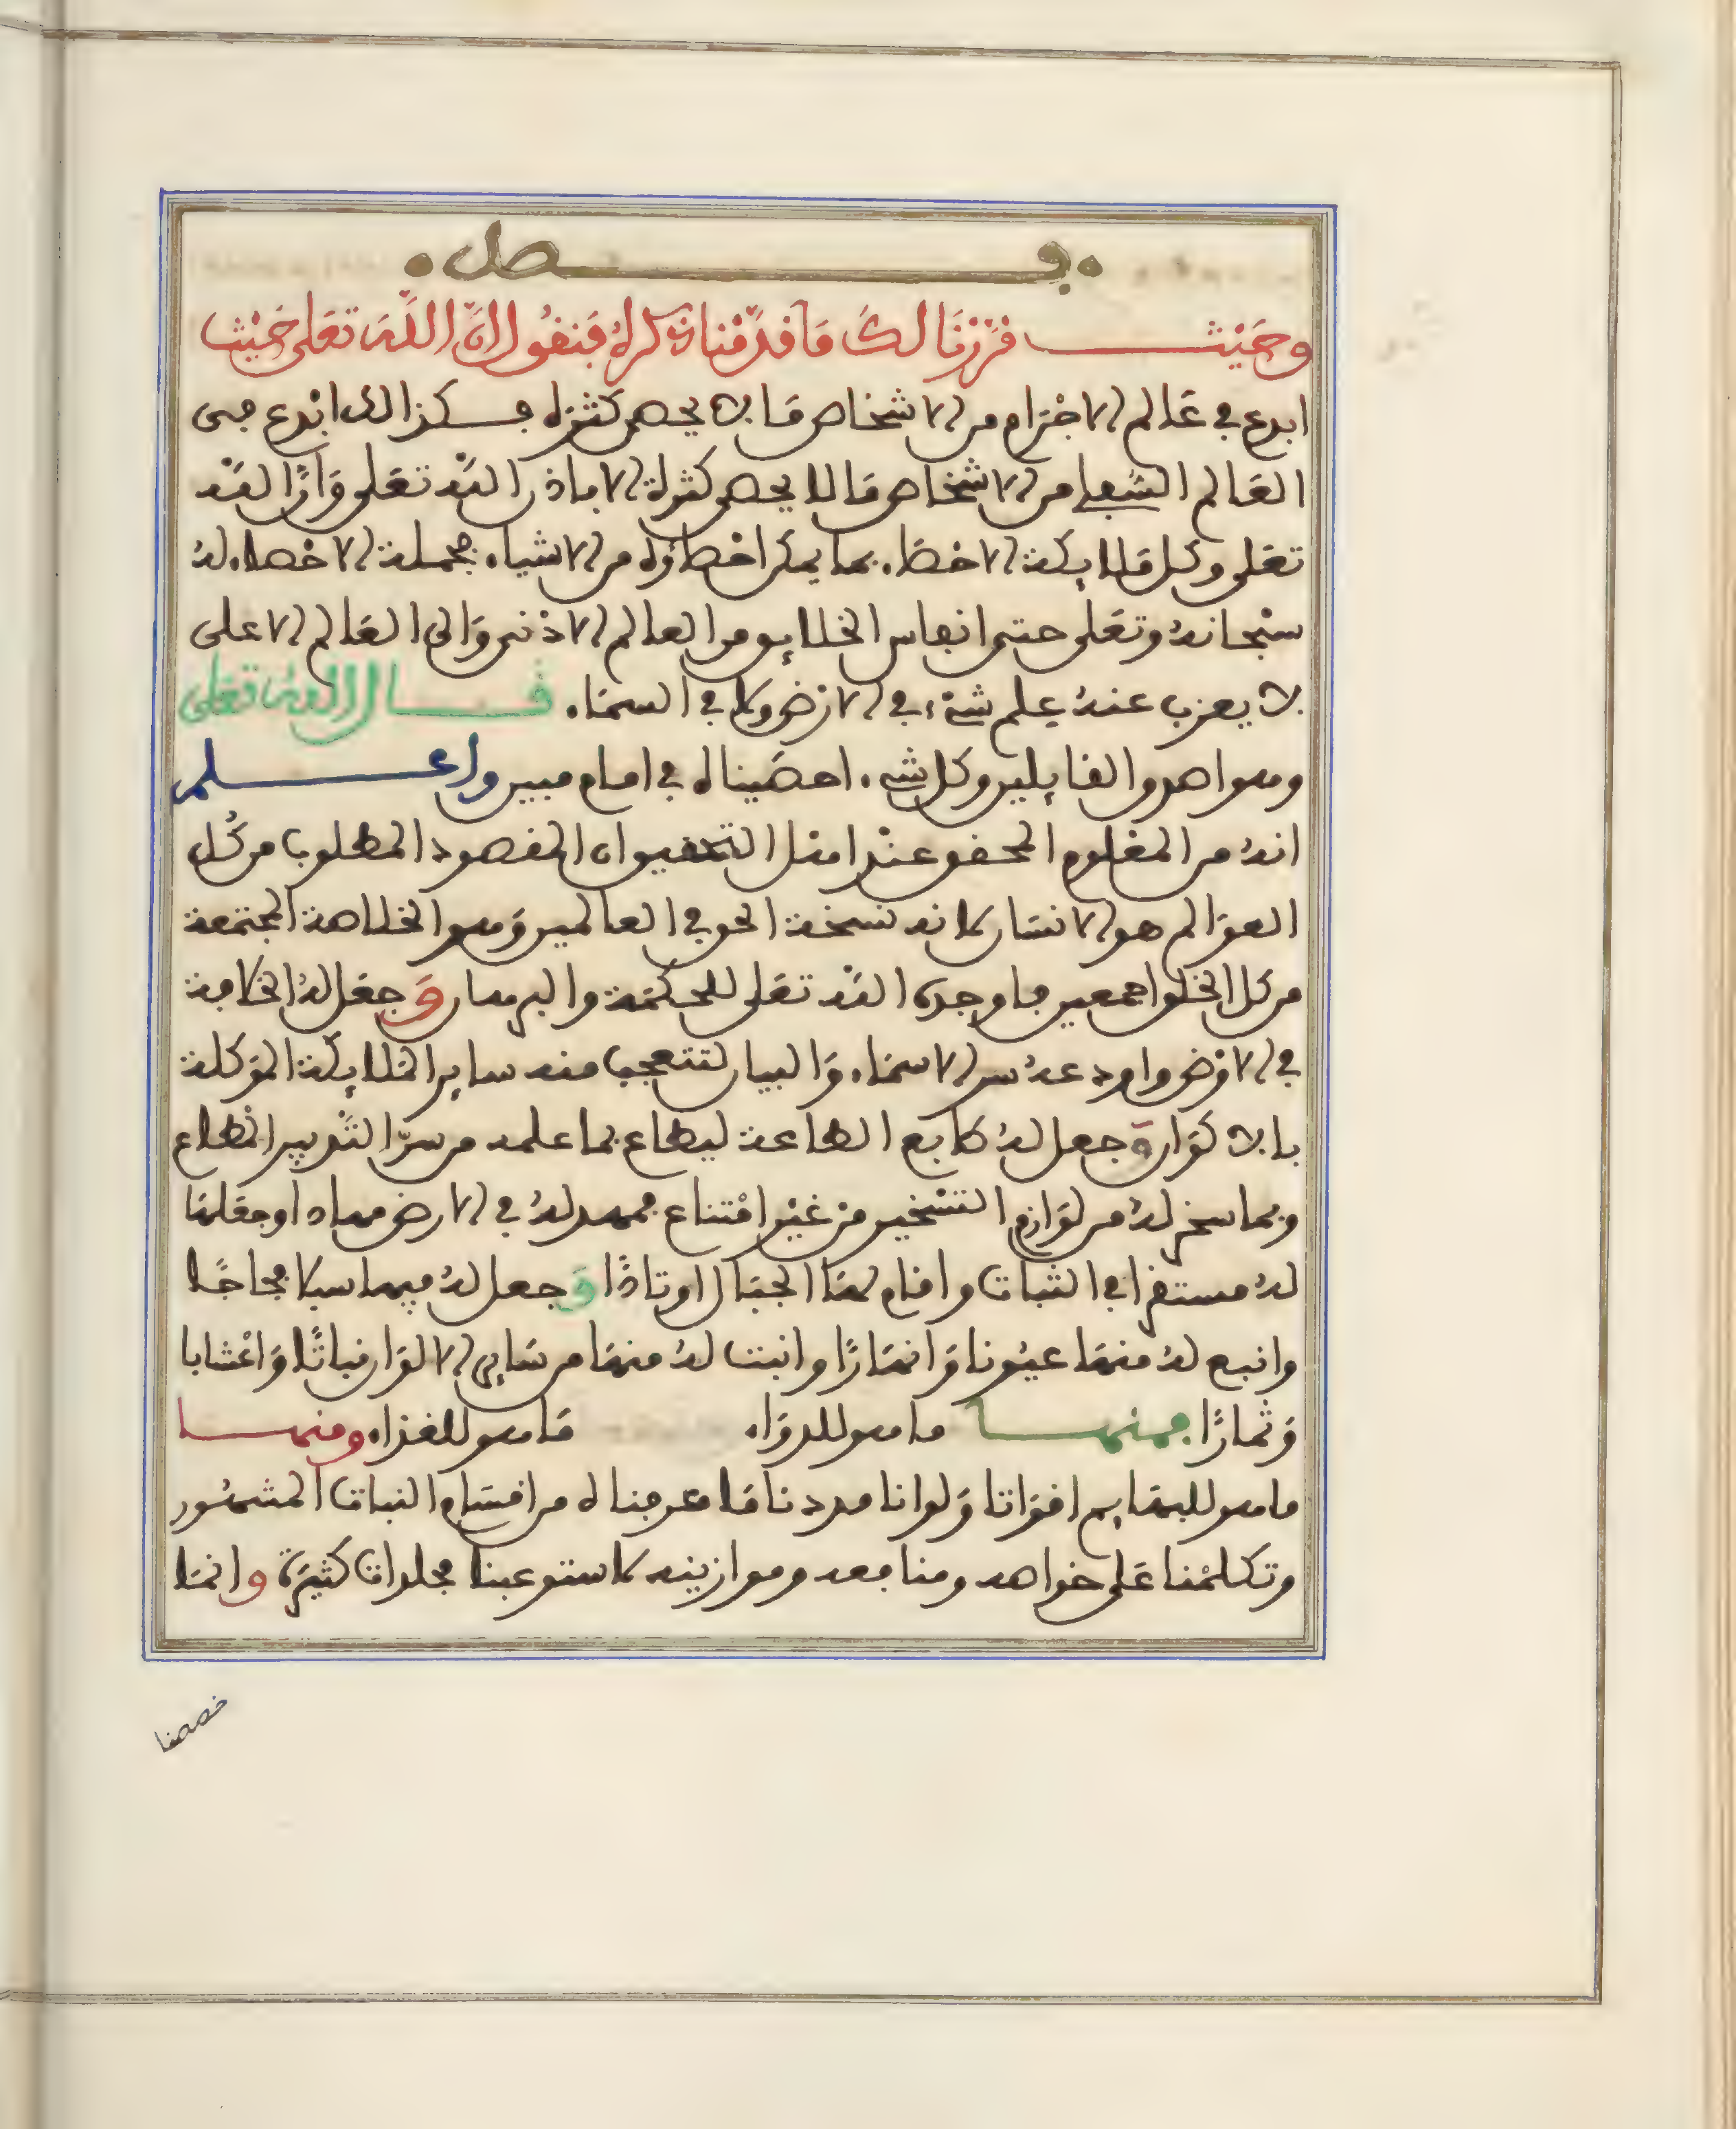 فصل
وحَيْث قرّرنَا لكَ مَا قدّمْناذكرهُ فَنقُول انَّ اللّهَ تعَلى حَيْث
ابدع في عَالم الاجْرَام من الاشخاص مَا لا يحصى كثرَه فكذالك ابْدع في
العَالم السّفلي من الاشخَاص مَا لا يحصى كثرة الا باذن اللّه تعَلى وَانّ اللّه
تعَلى وكل ملايكة الاحصَاء بما يمكن احصاؤه من الاشياء فجملة الاحصاء له
سبْحَانهُ وتعَلى حتى انفاس الخلايق من العالم الادْنى وَالى العَالم الاعلى
لا يعزب عنهُ علم شيْء في الارْض ولا في السمَاء قال اللهُ تعَلى
وهو اصدق القايلين وكل شيء احصَيناه في امام مبين واعلم
انهُ من المعْلوم المحقق عنْد اهل التحقيق ان المقصود المطلوب من كُل
العوَالم هو الانسَان لانه نسخة الحق في العالمين وَهو الخلاصة المجتمعة
من كل الخلق اجمعين فاوجده اللّه تعَلى للحكمَة والبرهان وَجعَل لهُ الخلافة
في الارْض واودعهُ سر الاسمَاء وَالبيان لتتعجب منه ساير الملايكة الموَكلة
بالاكوَان وَجعل لهُ طابع الطاعة ليطاع بما علمه من سرّ التدْبير المطاع
وبما سخر لهُ من لوَازم التسْخير من غيْر امْتناع فمهد لهُ في الارض مهادا وجعَلهَا
لهُ مستقرا في الثبات واقام لهَا الجبَال اوتادًا وَجعل لهُ فيهَا سبلا فجاجًا
وانبع لهُ منهَا عيُونا وَانهَارًا وانبت لهُ منهَا من سَاير الالوَان نباتًا وَاعْشابا
وَثمارًا فمنها ما هو للدوَاء مَا هو للغذاء ومنها
ما هو للبهَايم اقوَاتا وَلو انا عددنا مَا عرفناه من اقسَام النبات المشهُور
وتكلمْنا عَلى خواصه ومنافعه وموازينه لاستوعبنا مجلدات كثيرَة وانمَا
خصصنا